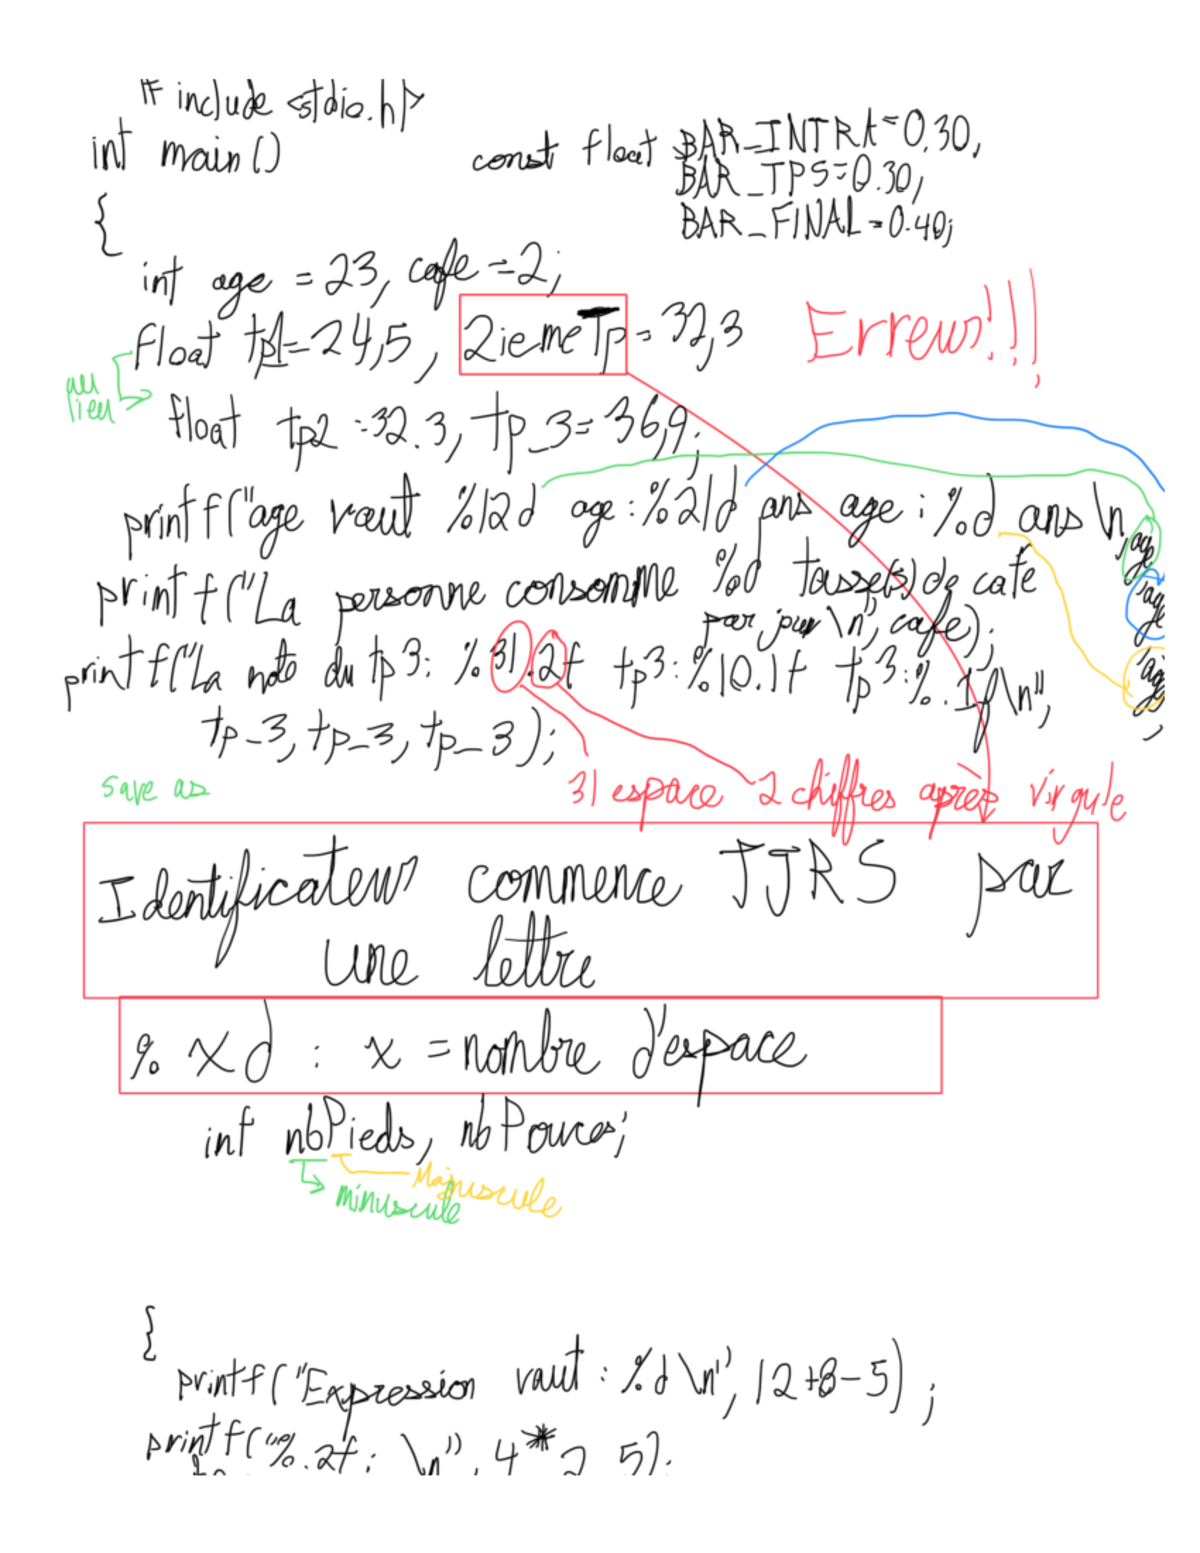 # include <stdio.h>
int main()
const float BAR_INTRA=0.30,
BAR_TPS=0.30,
BAR_FINAL=0.40;
{
int age = 23, cafe = 2;
float tp1=24,5, 2iemeTp = 32,3
Erreur!!!
au lieu
float tp2 = 32.3, tp_3 = 36,9;
printf("age vaut %12d age : %21d ans age : %d ans \n,
age
age
age
;
printf("La personne consomme %d tasse(s) de cafe
par jour \n", cafe);
printf("La note du tp3: %31.2f tp3:%10.1f tp3:%.1f\n",
tp_3, tp_3, tp_3);
31 espace 2 chiffres après virgule
save as
Identificateur commence TJRS par
une lettre
% x d : x = nombre d'espace
int nbPieds, nbPouces;
Majuscule
minuscule
{
printf("Expression vaut : %d \n", 12+8-5);
printf("%.2f : \n", 4*2.5);